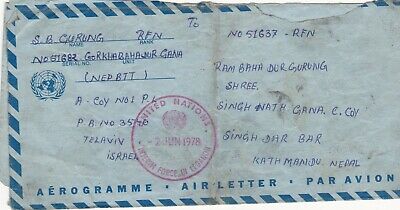 S.B. GURUNG RFN
NAME RANK
NO 51682 GORKHABAHADUR GANA
SERIAL NO. UNIT
(NEPBTT)
A-COY NO1 PL
P.A NO 3578
TELAVIV
ISRAEL
UNITED NATIONS
-2 JUN 1978
INTERIM FORCE IN LEBANON
To
NO 51637 - RFN
RAM BAHADUR GURUNG
SHREE.
SINGH NATH GANA. C. COY
SINGH DAR BAR
KATHMANDU NEPAL
AÉROGRAMME · AIR LETTER · PAR AVION